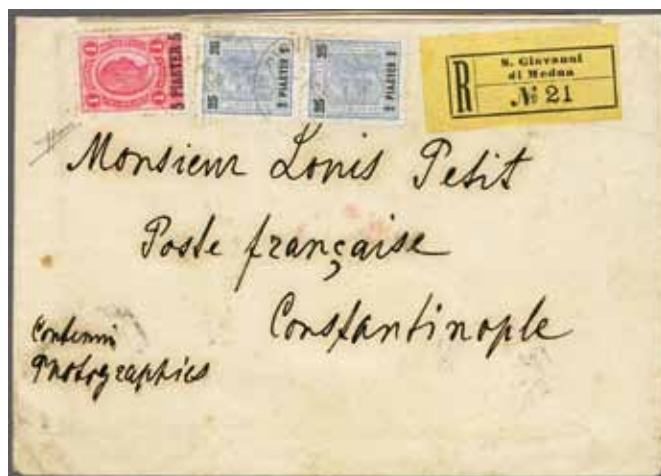 5 PIASTER 5
2 PIASTER 2
2 PIASTER 2
R
S. Giovanni
di Medua
№ 21
Monsieur Louis Petit
Poste française
Constantinople
Contenu
Photographies